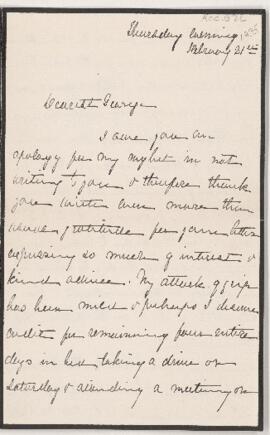 Thursday evening,
February 21st
Dearest George
I owe you an
apology for my neglect in not
writing to you & therefore thank
you with even more than
usual gratitude for your letter
expressing so much of interest &
kind advice. My attack of grip
has been mild & perhaps I deserve
credit for remaining four entire
days in bed taking a drive on
Saturday & attending a meeting on